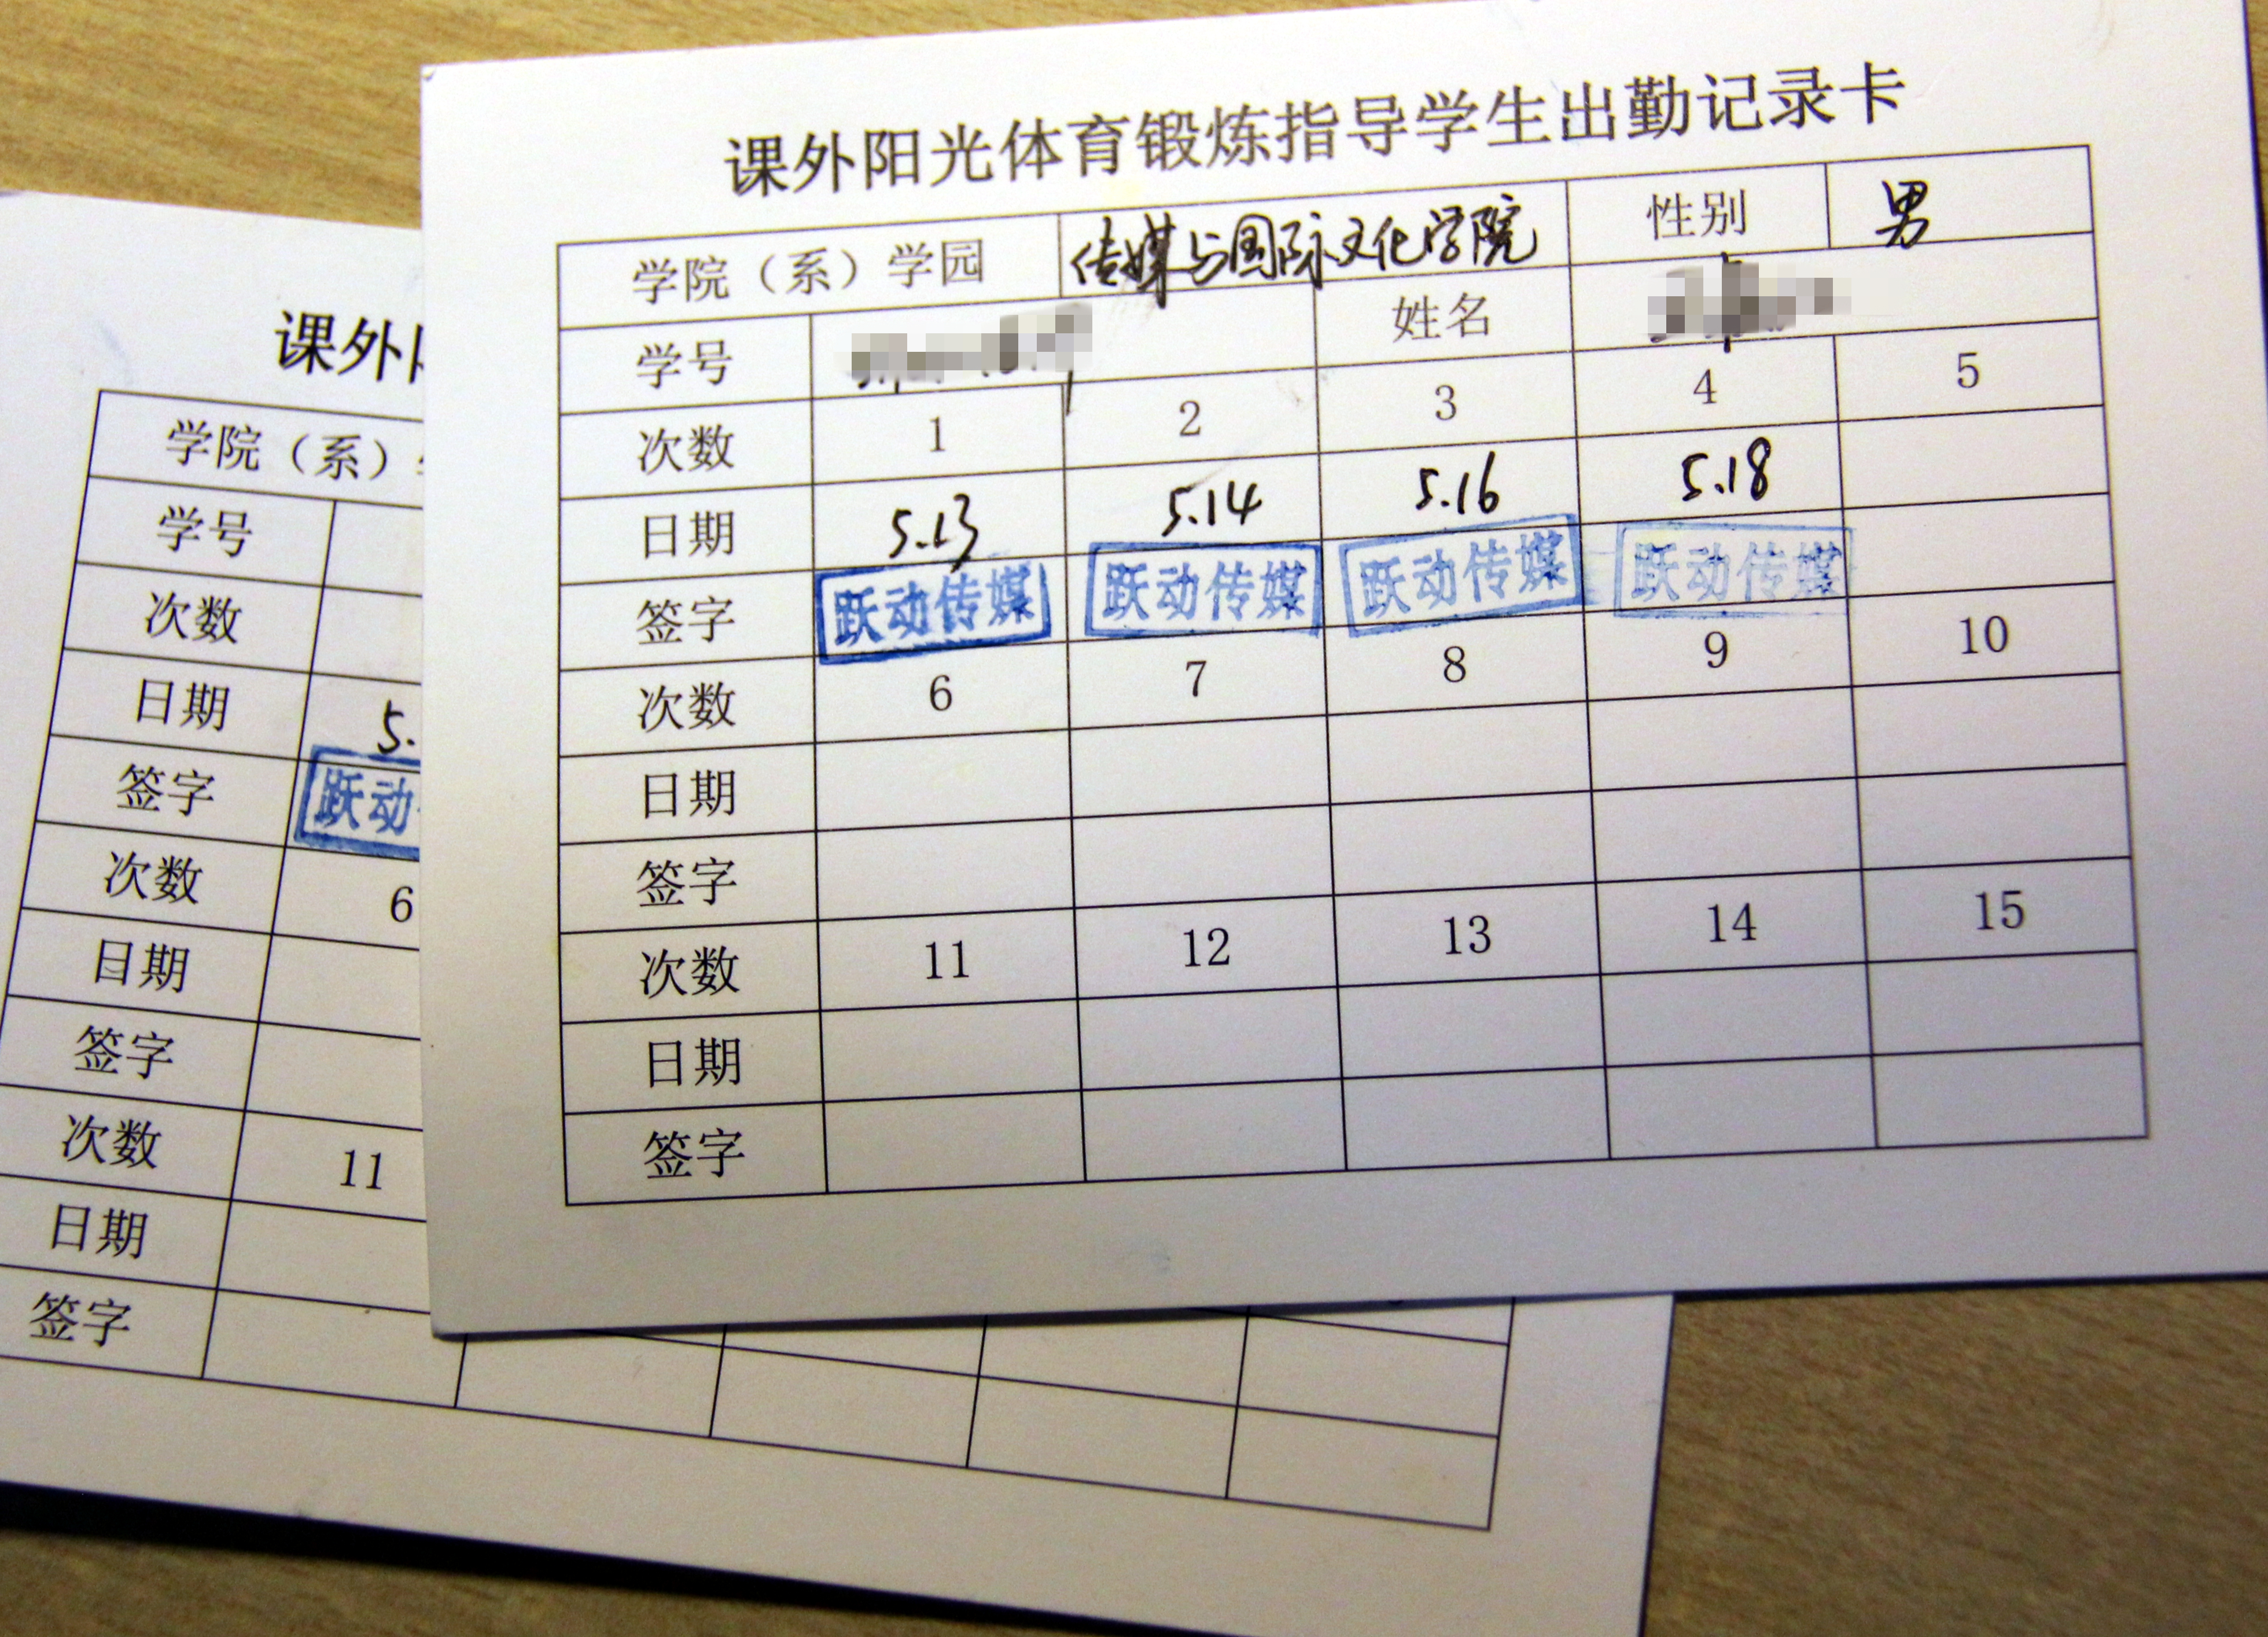 课外阳光体育锻炼指导学生出勤记录卡
学院（系）学园 传媒与国际文化学院 性别 男
学号 姓名
次数 1 2 3 4 5
日期 5.13 5.14 5.16 5.18
签字 跃动传媒 跃动传媒 跃动传媒 跃动传媒
次数 6 7 8 9 10
日期
签字
次数 11 12 13 14 15
日期
签字
课外
学院（系）
学号
次数
日期 5.
签字 跃动
次数 6
日期
签字
次数 11
日期
签字